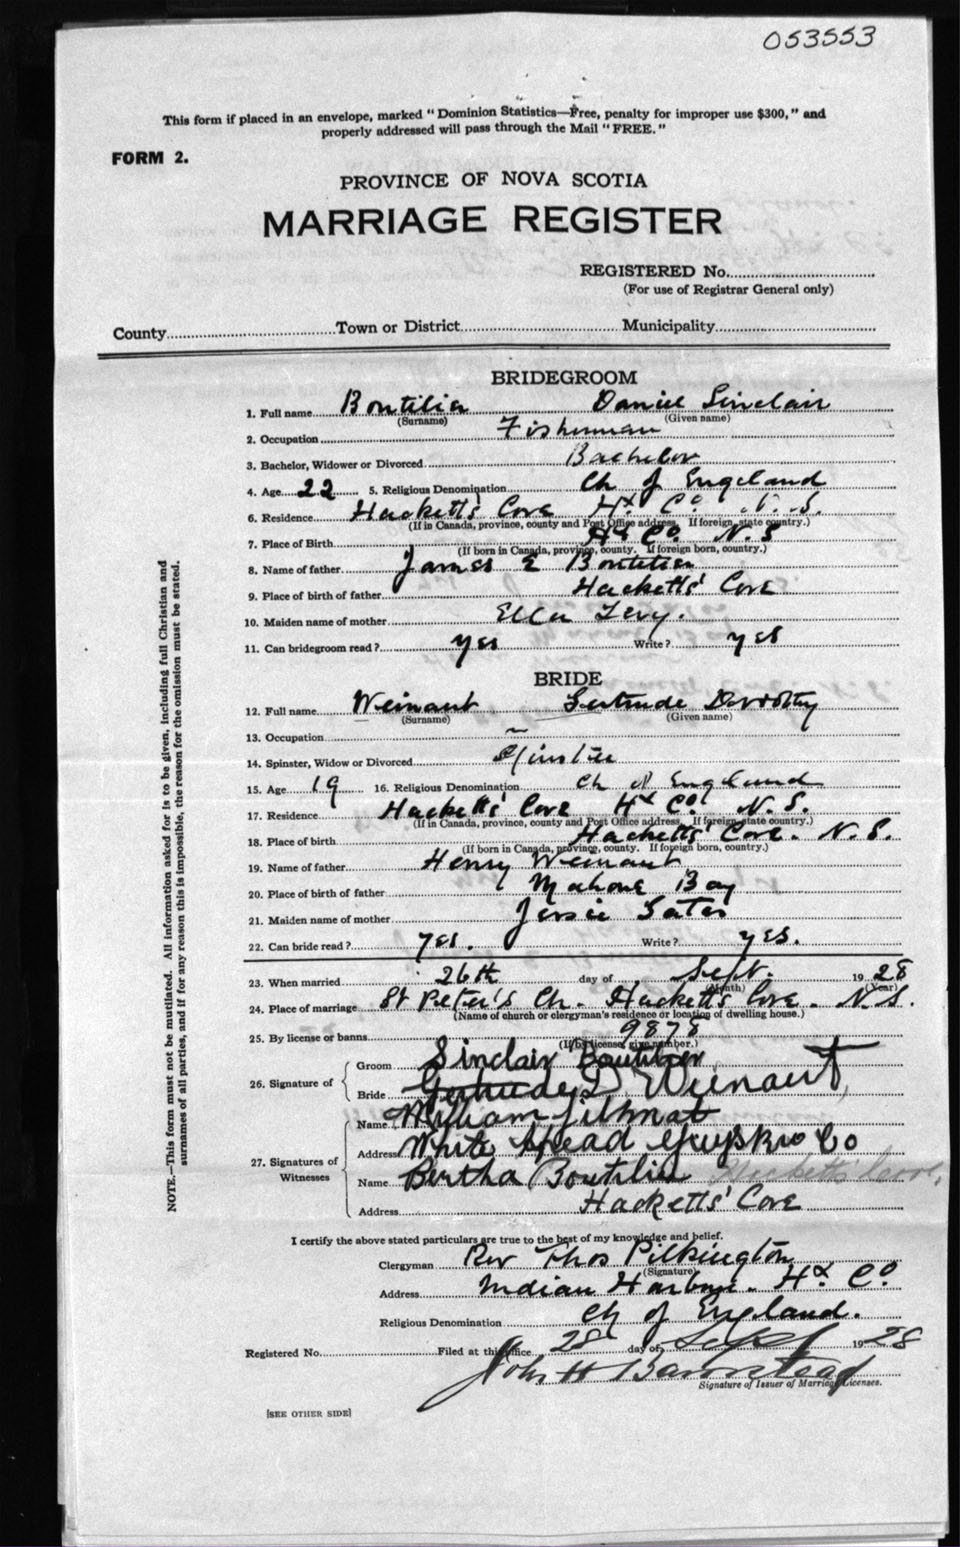 053553
This form if placed in an envelope, marked "Dominion Statistics—Free, penalty for improper use $300," and
properly addressed will pass through the Mail "FREE."
FORM 2.
PROVINCE OF NOVA SCOTIA
MARRIAGE REGISTER
REGISTERED No.
(For use of Registrar General only)
County Town or District Municipality
BRIDEGROOM
1. Full name Boutilier Daniel Sinclair
(Surname) (Given name)
2. Occupation Fisherman
3. Bachelor, Widower or Divorced Bachelor
4. Age 22 5. Religious Denomination Ch of England
6. Residence Hacketts' Cove Hx Co. N.S.
(If in Canada, province, county and Post Office address. If foreign, state country.)
7. Place of Birth Hx Co. N.S
(If born in Canada, province, county. If foreign born, country.)
8. Name of father James E Boutilier
9. Place of birth of father Hacketts' Cove
10. Maiden name of mother Ella Levy.
11. Can bridegroom read? yes Write? yes
BRIDE
12. Full name Weinaut Gertrude Dorothy
(Surname) (Given name)
13. Occupation ~
14. Spinster, Widow or Divorced Spinster
15. Age 19 16. Religious Denomination Ch of England
17. Residence Hacketts' Cove Hx Co. N.S.
(If in Canada, province, county and Post Office address. If foreign, state country.)
18. Place of birth Hacketts' Cove. N.S.
(If born in Canada, province, county. If foreign born, country.)
19. Name of father Henry Weinaut
20. Place of birth of father Mahone Bay
21. Maiden name of mother Jessie
22. Can bride read? Yes. Write? yes.
23. When married 26th day of Sept. 1928
(Month) (Year)
24. Place of marriage St Peter's Ch. Hacketts Cove. N.S.
(Name of church or clergyman's residence or location of dwelling house.)
25. By license or banns 9878
(If by license, give number.)
26. Signature of Groom Sinclair Boutilier
Bride Gertrude D Weinaut
27. Signatures of Witnesses
Name William
Address White Head Guysboro Co
Name Bertha Boutilier Hacketts' Cove,
Address Hacketts' Cove
I certify the above stated particulars are true to the best of my knowledge and belief.
Clergyman Rev Thos Pilkington
(Signature)
Address Indian Harbour. Hx Co
Religious Denomination Ch of England.
Registered No. Filed at this office 28 day of Sept 1928
John H
Signature of Issuer of Marriage Licenses.
[SEE OTHER SIDE]
NOTE.—This form must not be mutilated. All information asked for is to be given, including full Christian and
surnames of all parties, and if for any reason this is impossible, the reason for the omission must be stated.